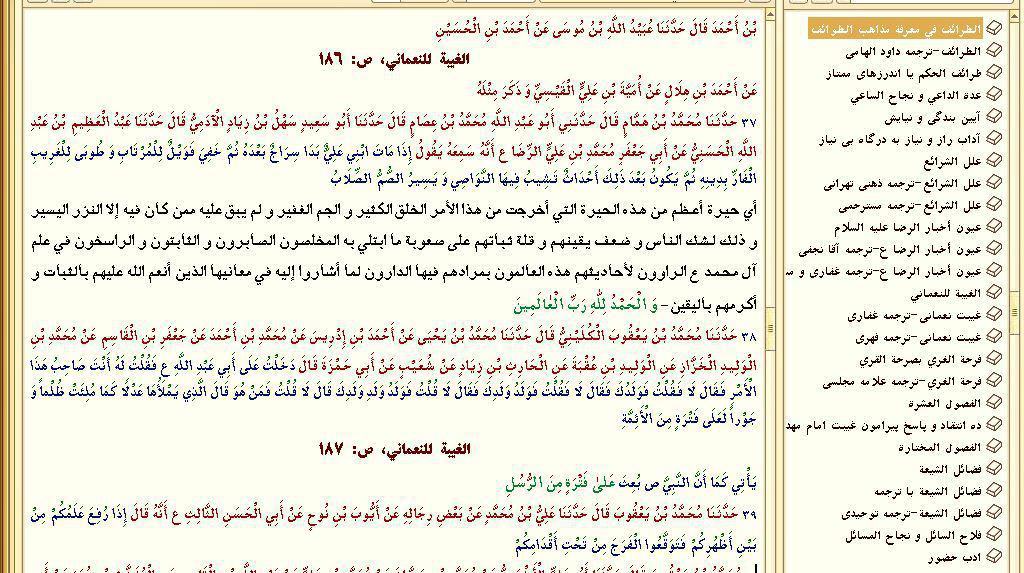 بْنُ أَحْمَدَ قَالَ حَدَّثَنَا عُبَيْدُ اللَّهِ بْنُ مُوسَى عَنْ أَحْمَدَ بْنِ الْحُسَيْنِ
الغيبة للنعماني، ص: ١٨٦
عَنْ أَحْمَدَ بْنِ هِلَالٍ عَنْ أُمَيَّةَ بْنِ عَلِيٍّ الْقَيْسِيِّ وَ ذَكَرَ مِثْلَهُ
٣٧ حَدَّثَنَا مُحَمَّدُ بْنُ هَمَّامٍ قَالَ حَدَّثَنِي أَبُو عَبْدِ اللَّهِ مُحَمَّدُ بْنُ عِصَامٍ قَالَ حَدَّثَنَا أَبُو سَعِيدٍ سَهْلُ بْنُ زِيَادٍ الْآدَمِيُّ قَالَ حَدَّثَنَا عَبْدُ الْعَظِيمِ بْنُ عَبْدِ
اللَّهِ الْحَسَنِيُّ عَنْ أَبِي جَعْفَرٍ مُحَمَّدِ بْنِ عَلِيٍّ الرِّضَا ع أَنَّهُ سَمِعَهُ يَقُولُ إِذَا مَاتَ ابْنِي عَلِيٌّ بَدَا سِرَاجٌ بَعْدَهُ ثُمَّ خَفِيَ فَوَيْلٌ لِلْمُرْتَابِ وَ طُوبَى لِلْغَرِيبِ
الْفَارِّ بِدِينِهِ ثُمَّ يَكُونُ بَعْدَ ذَلِكَ أَحْدَاثٌ تَشِيبُ فِيهَا النَّوَاصِي وَ يَسِيرُ الصُّمُّ الصِّلَابُ
أي حيرة أعظم من هذه الحيرة التي أخرجت من هذا الأمر الخلق الكثير و الجم الغفير و لم يبق عليه ممن كان فيه إلا النزر اليسير
و ذلك لشك الناس و ضعف يقينهم و قلة ثباتهم على صعوبة ما ابتلي به المخلصون الصابرون و الثابتون و الراسخون في علم
آل محمد ع الراوون لأحاديثهم هذه العالمون بمرادهم فيها الدارون لما أشاروا إليه في معانيها الذين أنعم الله عليهم بالثبات و
أكرمهم باليقين- وَ الْحَمْدُ لِلَّهِ رَبِّ الْعَالَمِينَ
٣٨ حَدَّثَنَا مُحَمَّدُ بْنُ يَعْقُوبَ الْكُلَيْنِيُّ قَالَ حَدَّثَنَا مُحَمَّدُ بْنُ يَحْيَى عَنْ أَحْمَدَ بْنِ إِدْرِيسَ عَنْ مُحَمَّدِ بْنِ أَحْمَدَ عَنْ جَعْفَرِ بْنِ الْقَاسِمِ عَنْ مُحَمَّدِ بْنِ
الْوَلِيدِ الْخَزَّازِ عَنِ الْوَلِيدِ بْنِ عُقْبَةَ عَنِ الْحَارِثِ بْنِ زِيَادٍ عَنْ شُعَيْبٍ عَنْ أَبِي حَمْزَةَ قَالَ دَخَلْتُ عَلَى أَبِي عَبْدِ اللَّهِ ع فَقُلْتُ لَهُ أَنْتَ صَاحِبُ هَذَا
الْأَمْرِ فَقَالَ لَا فَقُلْتُ فَوَلَدُكَ فَقَالَ لَا فَقُلْتُ فَوَلَدُ وَلَدِكَ فَقَالَ لَا قُلْتُ فَوَلَدُ وَلَدِ وَلَدِكَ قَالَ لَا قُلْتُ فَمَنْ هُوَ قَالَ الَّذِي يَمْلَأُهَا عَدْلًا كَمَا مُلِئَتْ ظُلْماً وَ
جَوْراً لَعَلَى فَتْرَةٍ مِنَ الْأَئِمَّةِ
الغيبة للنعماني، ص: ١٨٧
يَأْتِي كَمَا أَنَّ النَّبِيَّ ص بُعِثَ عَلَى فَتْرَةٍ مِنَ الرُّسُلِ
٣٩ حَدَّثَنَا مُحَمَّدُ بْنُ يَعْقُوبَ قَالَ حَدَّثَنَا عَلِيُّ بْنُ مُحَمَّدٍ عَنْ بَعْضِ رِجَالِهِ عَنْ أَيُّوبَ بْنِ نُوحٍ عَنْ أَبِي الْحَسَنِ الثَّالِثِ ع أَنَّهُ قَالَ إِذَا رُفِعَ عَلَمُكُمْ مِنْ
بَيْنِ أَظْهُرِكُمْ فَتَوَقَّعُوا الْفَرَجَ مِنْ تَحْتِ أَقْدَامِكُمْ
الطرائف في معرفة مذاهب الطوائف
الطرائف-ترجمه داود الهامى
طرائف الحكم يا اندرزهاى ممتاز
عدة الداعي و نجاح الساعي
آيين بندگى و نيايش
آداب راز و نياز به درگاه بى نياز
علل الشرائع
علل الشرائع-ترجمه ذهنى تهرانى
علل الشرائع-ترجمه مسترحمى
عيون أخبار الرضا عليه السلام
عيون أخبار الرضا ع-ترجمه آقا نجفى
عيون أخبار الرضا ع-ترجمه غفارى و مس
الغيبة للنعماني
غيبت نعمانى-ترجمه غفارى
غيبت نعمانى-ترجمه فهرى
فرحة الغري بصرحة القري
فرحة الغري-ترجمه علامه مجلسى
الفصول العشرة
ده انتقاد و پاسخ پيرامون غيبت امام مهد
الفصول المختارة
فضائل الشيعة
فضائل الشيعة با ترجمه
فضائل الشيعة-ترجمه توحيدى
فلاح السائل و نجاح المسائل
ادب حضور